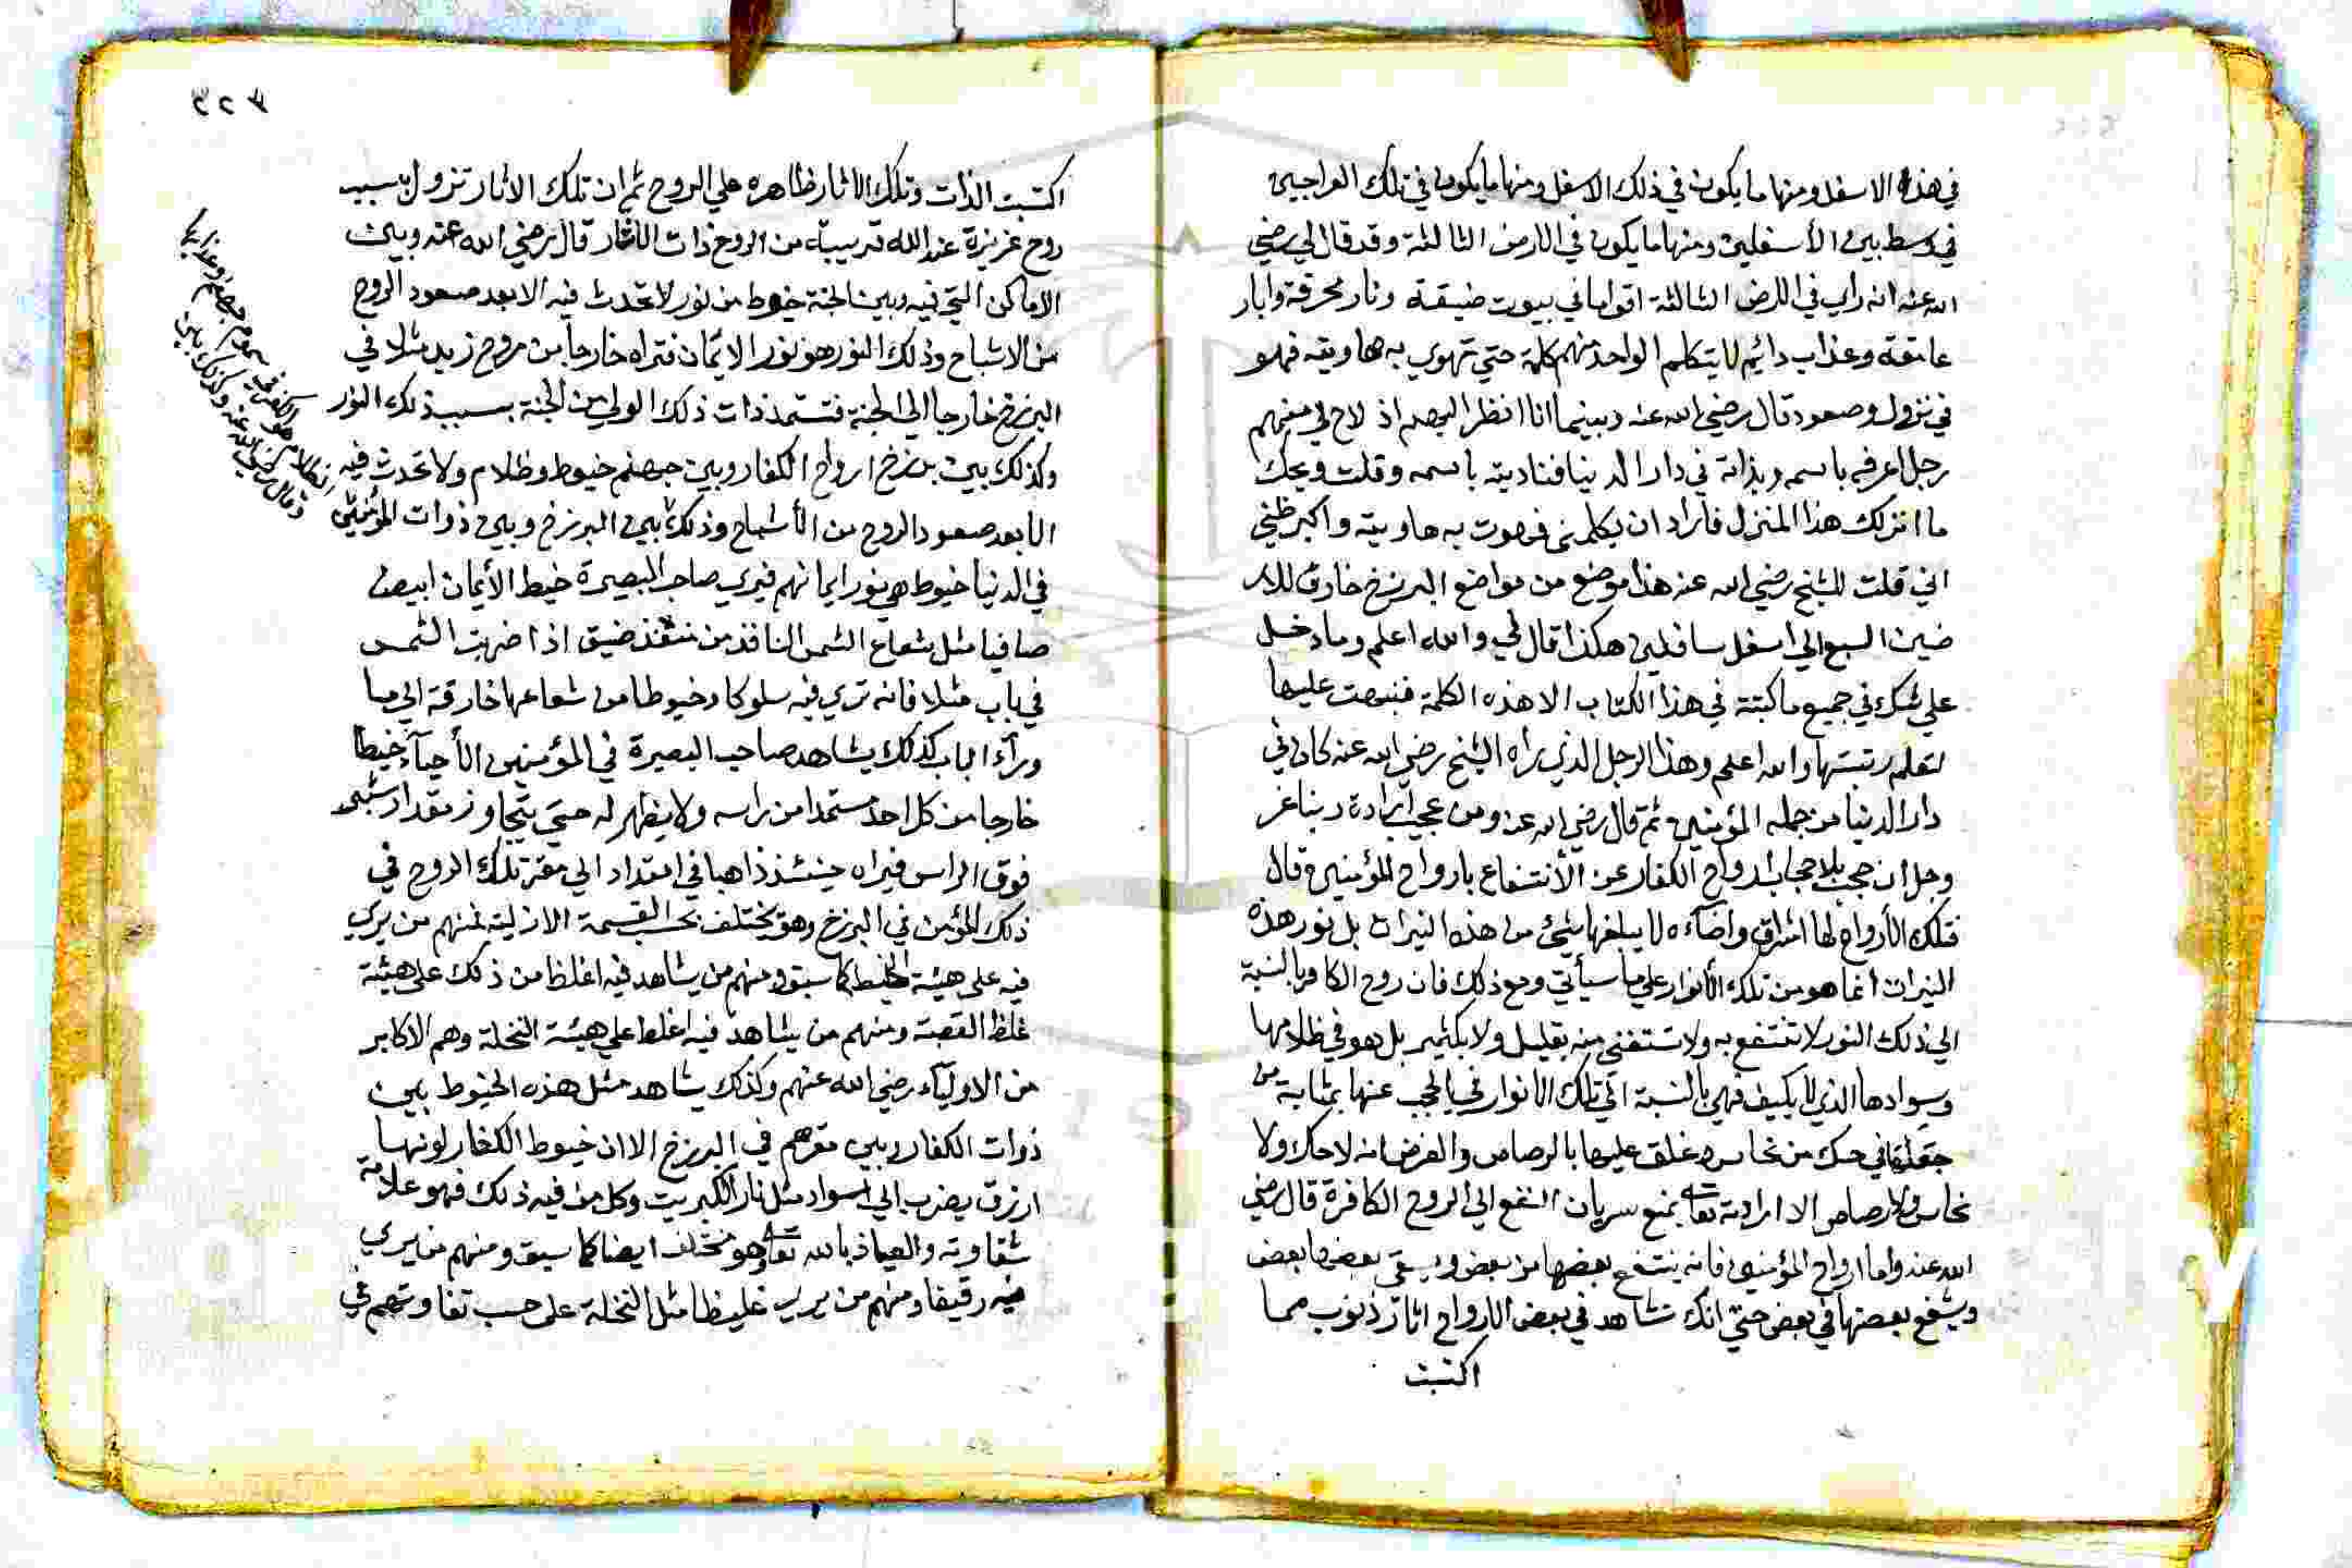 في هذا الاسفل ومنها ما يكون في ذلك الاسفل ومنها ما يكون في تلك العراجين
في وسط بين الأسفلين ومنها ما يكون في الارض الثالثة وقد قال لي رضي
الله عنه انه راي في الارض الثالثة اقواما في بيوت ضيقة ونار محرقة وابار
غامقة وعذاب دائم لا يتكلم الواحد منهم كلمة حتي تهوي به هاويته فهو
في نزول وصعود قال رضي الله عنه وبينما انا انظر اليهم اذ لاح لي منهم
رجل اعرفه باسمه وبذاته في دار الدنيا فناديته باسمه وقلت ويحك
ما انزلك هذا المنزل فاراد ان يكلمني فهوت به هاويته واكبر ظني
اني قلت للشيخ رضي الله عنه هذا موضع من مواضع البرزخ خارق للار
ضين السبع الي اسفل سافلين هكذا قال لي والله اعلم وما دخل
علي شك في جميع ما كتبته في هذا الكتاب الا هذه الكلمة فنبهت عليها
لتعلم رتبتها والله اعلم وهذا الرجل الذي راه الشيخ رضي الله عنه كان في
دار الدنيا من جملة المؤمنين ثم قال رضي الله عنه ومن عجيب ارادة ربنا عز
وجل ان حجب بلا حجاب ارواح الكفار عن الأنتفاع بارواح المؤمنين قال
فتلك الأرواح لها اشراق واضاءه لا يبلغها شئ من هذه النيرات بل نور هذه
النيرات انما هو من تلك الأنوار علي ما سيأتي ومع ذلك فان روح الكافر بالنسبة
الي ذلك النور لا تنتفع به ولا تستفي منه بقليل ولا بكثير بل هو في ظلامها
وسوادها الذي لا يكيف فهي بالنسبة الي تلك الانوار في الحجب عنها بمثابة من
جعلها في حك من نحاس وغلق عليها بالرصاص والفرض انه لا حك ولا
نحاس ولا رصاص الا ارادته تعالى بمنع سريان النفع الي الروح الكافرة قال رضي
الله عنه واما ارواح المؤمنين فانه ينتفع بعضها من بعض ويسقى بعضها بعض
ويشفع بعضها في بعض حتي انك تشاهد في بعض الارواح اثار ذنوب مما
اكتسبت
٢٢٣
اكتسبت الذات وتلك الاثار ظاهره علي الروح ثم ان تلك الاثار تزول بسبب
روح عزيزة عند الله قريبة من الروح ذات الأثار قال رضي الله عنه وبين
الاماكن التي فيه وبين الجنة خيوط من نور لا تحدث فيه الا بعد صعود الروح
من الاشباح وذلك النور هو نور الايمان فتراه خارجا من روح زيد مثلا في
البرزخ خارجا الي الجنة فتستمد ذات ذلك الولي من الجنة بسبب ذلك النور
وكذلك بين برزخ ارواح الكفار وبين جهنم خيوط وظلام ولا تحدث فيه
الا بعد صعود الروح من الأشباح وذلك بين البرزخ وبين ذوات المؤمنين
في الدنيا خيوط هي نور ايمانهم فيري صاحب البصيرة خيط الأيمان ابيض
صافيا مثل شعاع الشمس النافذ من منفذ ضيق اذا ضربت الشمس
في باب مثلا فانه تري فيه سلوكا وخيوطا من شعاعها خارقة الي ما
وراء الباب كذلك يشاهد صاحب البصيرة في المؤمنين الأحياء خيطا
خارجا من كل احد مستمدا من راسه ولا يظهر له حتي يتجاوز مقدار شبر
فوق الراس فيراه حينئذ ذاهبا في امتداد الي مقر تلك الروح في
ذلك المؤمن في البرزخ وهو يختلف بحسب القسمة الازلية فمنهم من يري
فيه علي هيئة الخيط كما سبق ومنهم من يشاهد فيه اغلظ من ذلك علي هيئة
غلظ القصبة ومنهم من يشاهد فيه اغلظ علي هيئة النخلة وهم الاكابر
من الاولياء رضي الله عنهم وكذلك يشاهد مثل هذه الخيوط بين
ذوات الكفار وبين مقرهم في البرزخ الا ان خيوط الكفار لونها
ازرق يضرب الي سواد مثل نار الكبريت وكل من فيه ذلك فهو علامة
شقاوته والعياذ بالله تعالى وهو مختلف ايضا كما سبق ومنهم من يري
فيه رقيقا ومنهم من يري غليظا مثل النخلة علي حسب تفاوتهم في
الظلام هو الكفر في سموم جهنم وعذابها
وقال رضي الله عنه وكذلك بين